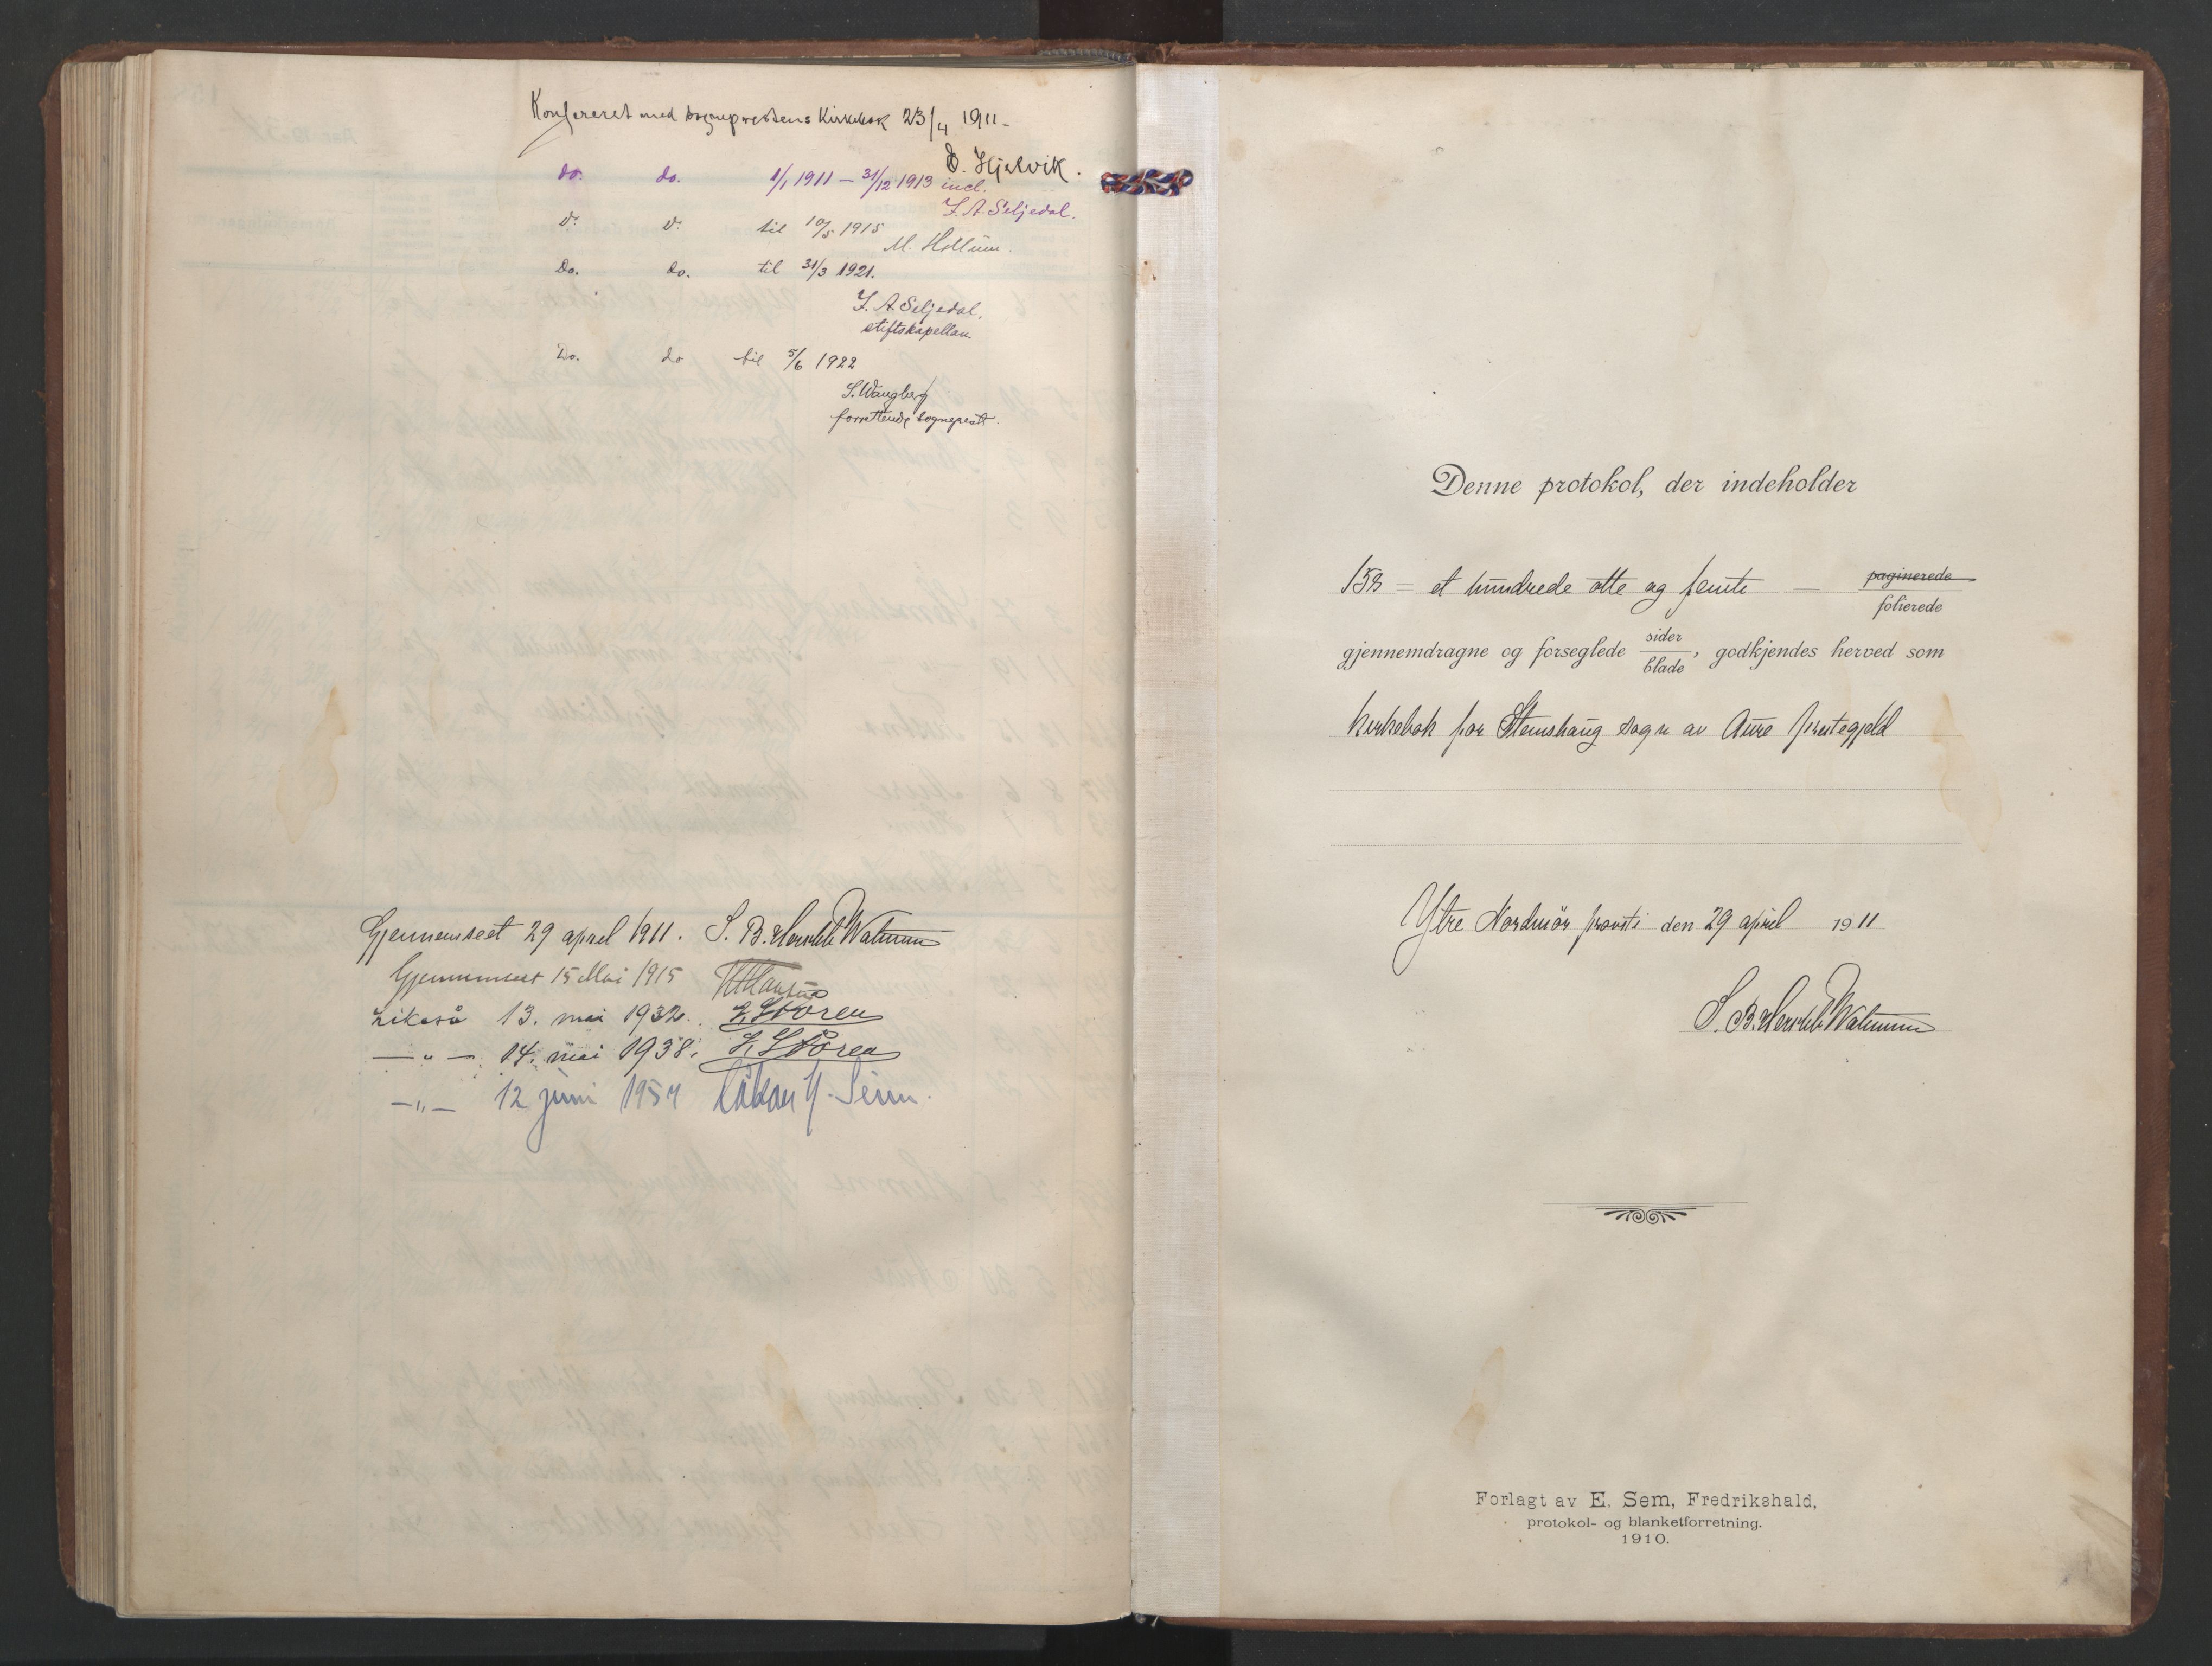 Konfereret med sognepræstens Kirkebok 23/4 1911 -
E. Hjelvik.
do. do. 1/1 1911 - 31/12 1913 incl.
J. A. Seljedal.
d: d: til 10/5 1915
M. Hollum.
Do. do. til 31/3 1921.
J. A. Seljedal,
stiftskapellan.
Do. do til 5/6 1922
S. Wangberg
forrettende sogneprest.
Gjennemseet 29 april 1911. S. B. Hersleb Walnum
Gjennemseet 15 Mai 1915
Likeså 13. mai 1932. Støren
— " — 14. mai 1938. Støren
— " — 12 juni 1954 Håkon J. Seim.
Denne protokol, der indeholder
158 = et hundrede otte og femti — paginerede
folierede
gjennemdragne og forseglede sider
blade, godkjendes herved som
kirkebok for Stemshaug sogn av Aure prestegjeld
Ytre Nordmör provsti den 29 april 1911
S. B. Hersleb Walnum
Forlagt av E. Sem, Fredrikshald,
protokol- og blanketforretning.
1910.